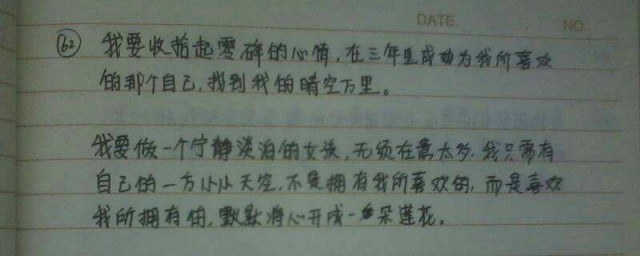 DATE. NO.
62 我要收拾起零碎的心情,在三年里成功为我所喜欢
的那个自己,找到我的晴空万里。
我要做一个宁静淡泊的女孩,无须在意太多.我只需有
自己的一方小小天空,不是拥有我所喜欢的,而是喜欢
我所拥有的,默默将心开成一朵莲花。